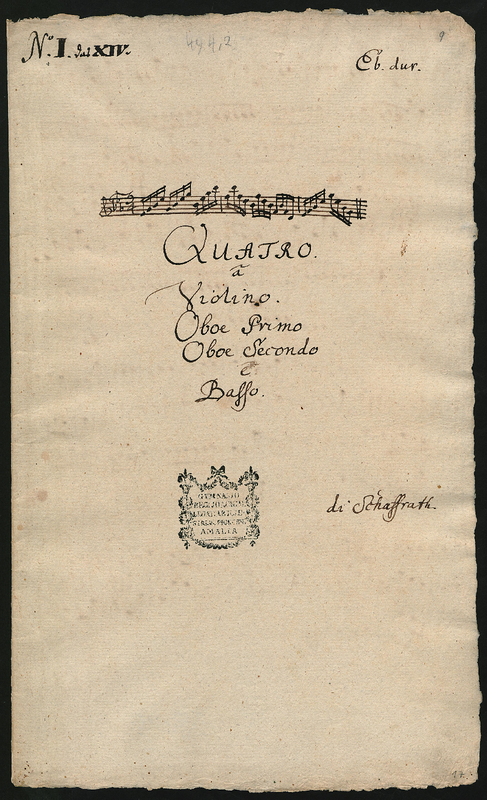 No. I. dal XIV.
Eb. dur.
9
QUATRO.
a
Violino.
Oboe Primo
Oboe Secondo
e
Basso.
di Schaffrath.
GYMNASIO
AMALIA